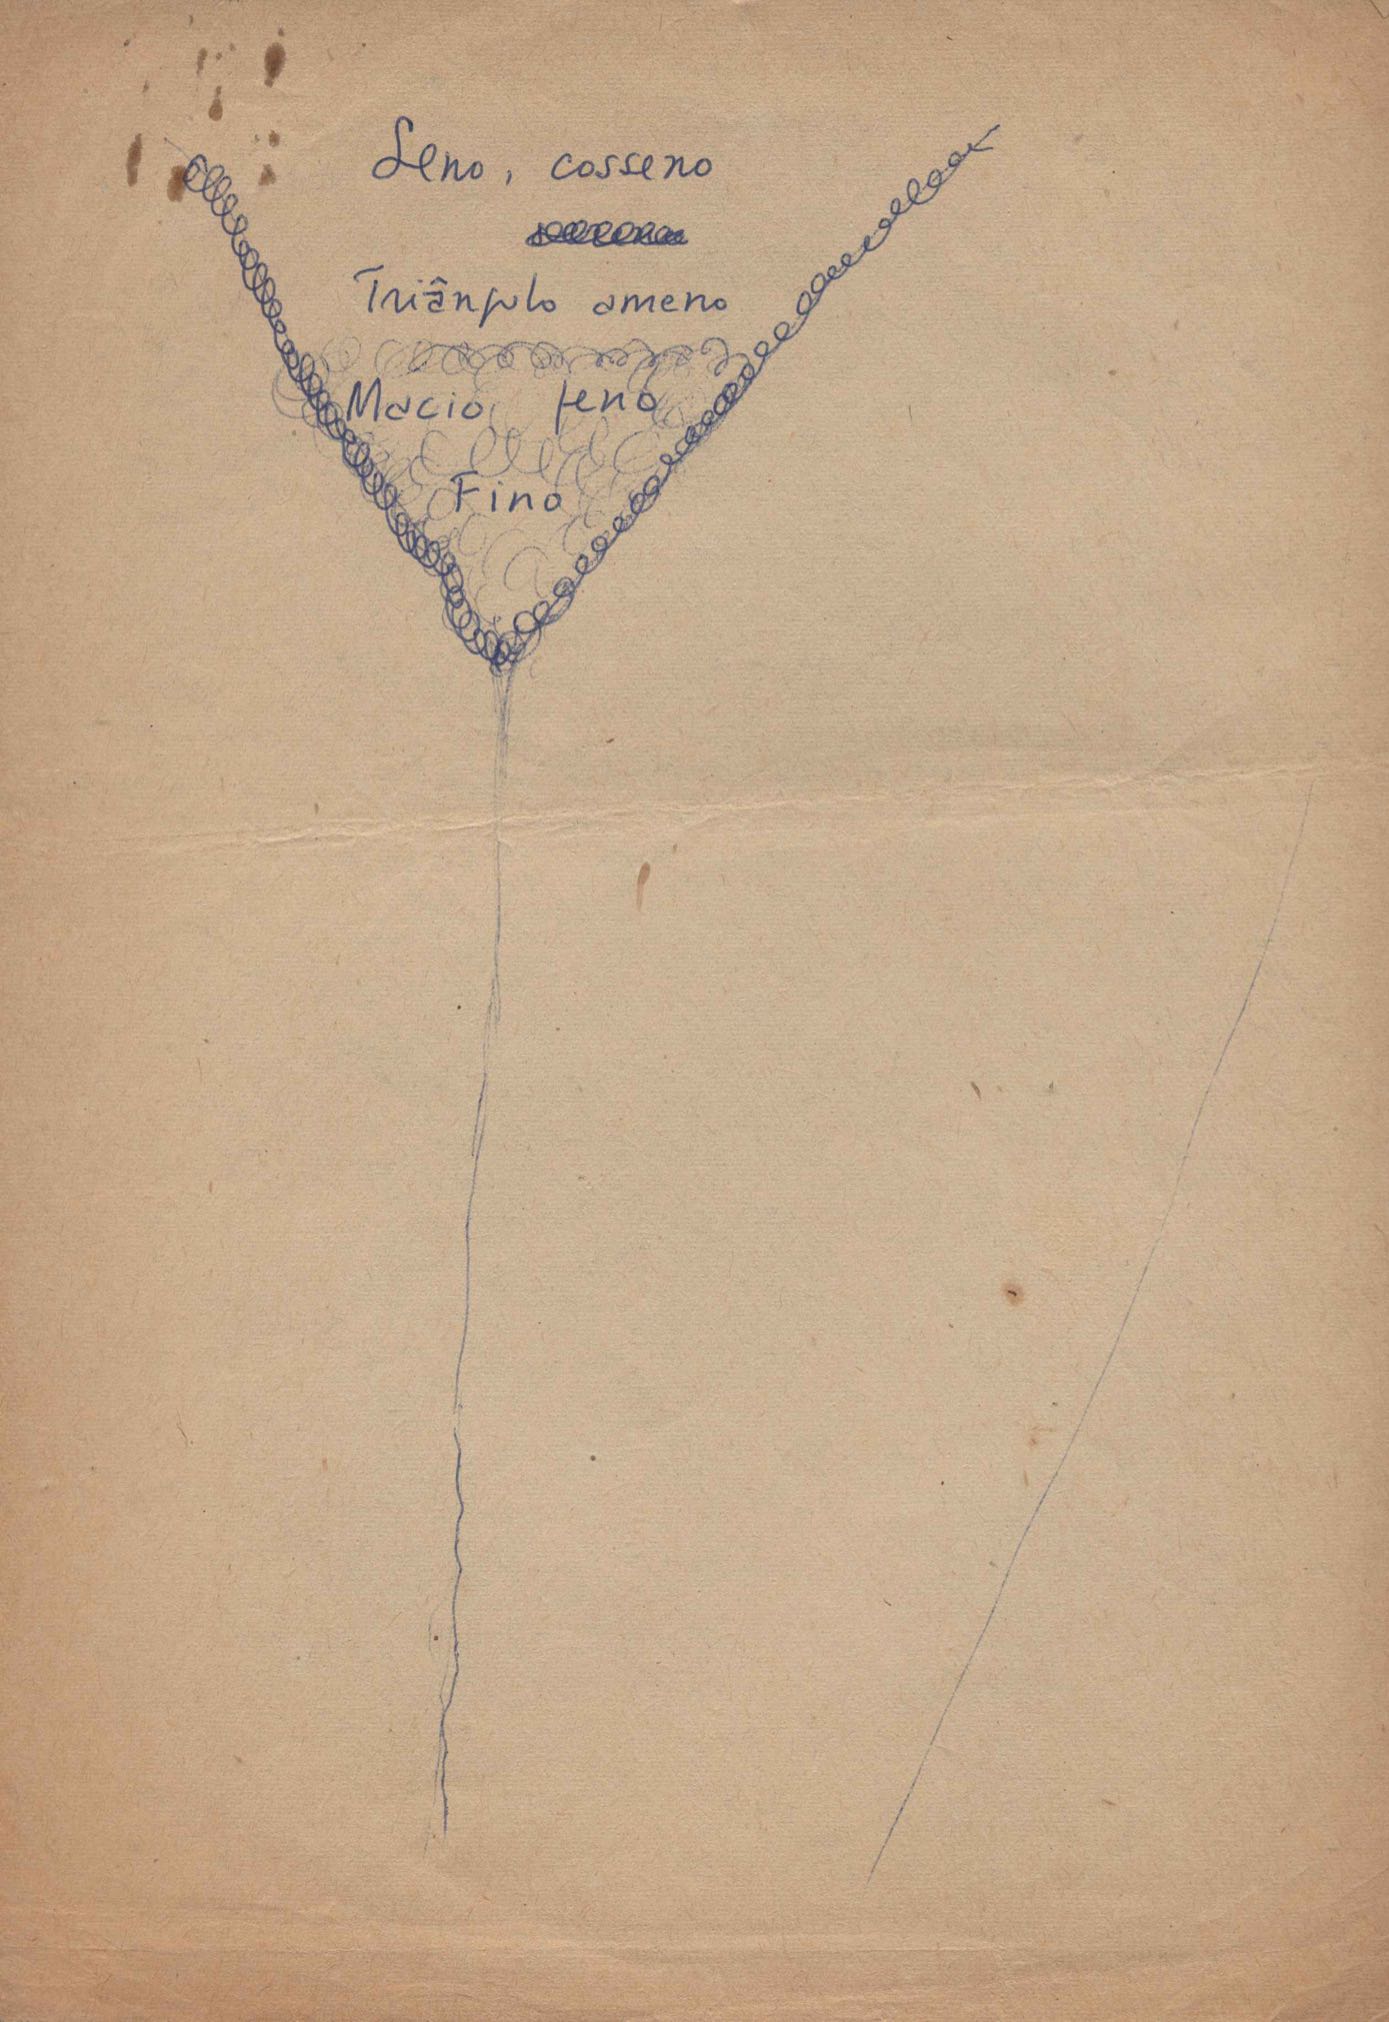 Seno, cosseno
Triângulo ameno
Macio feno
Fino